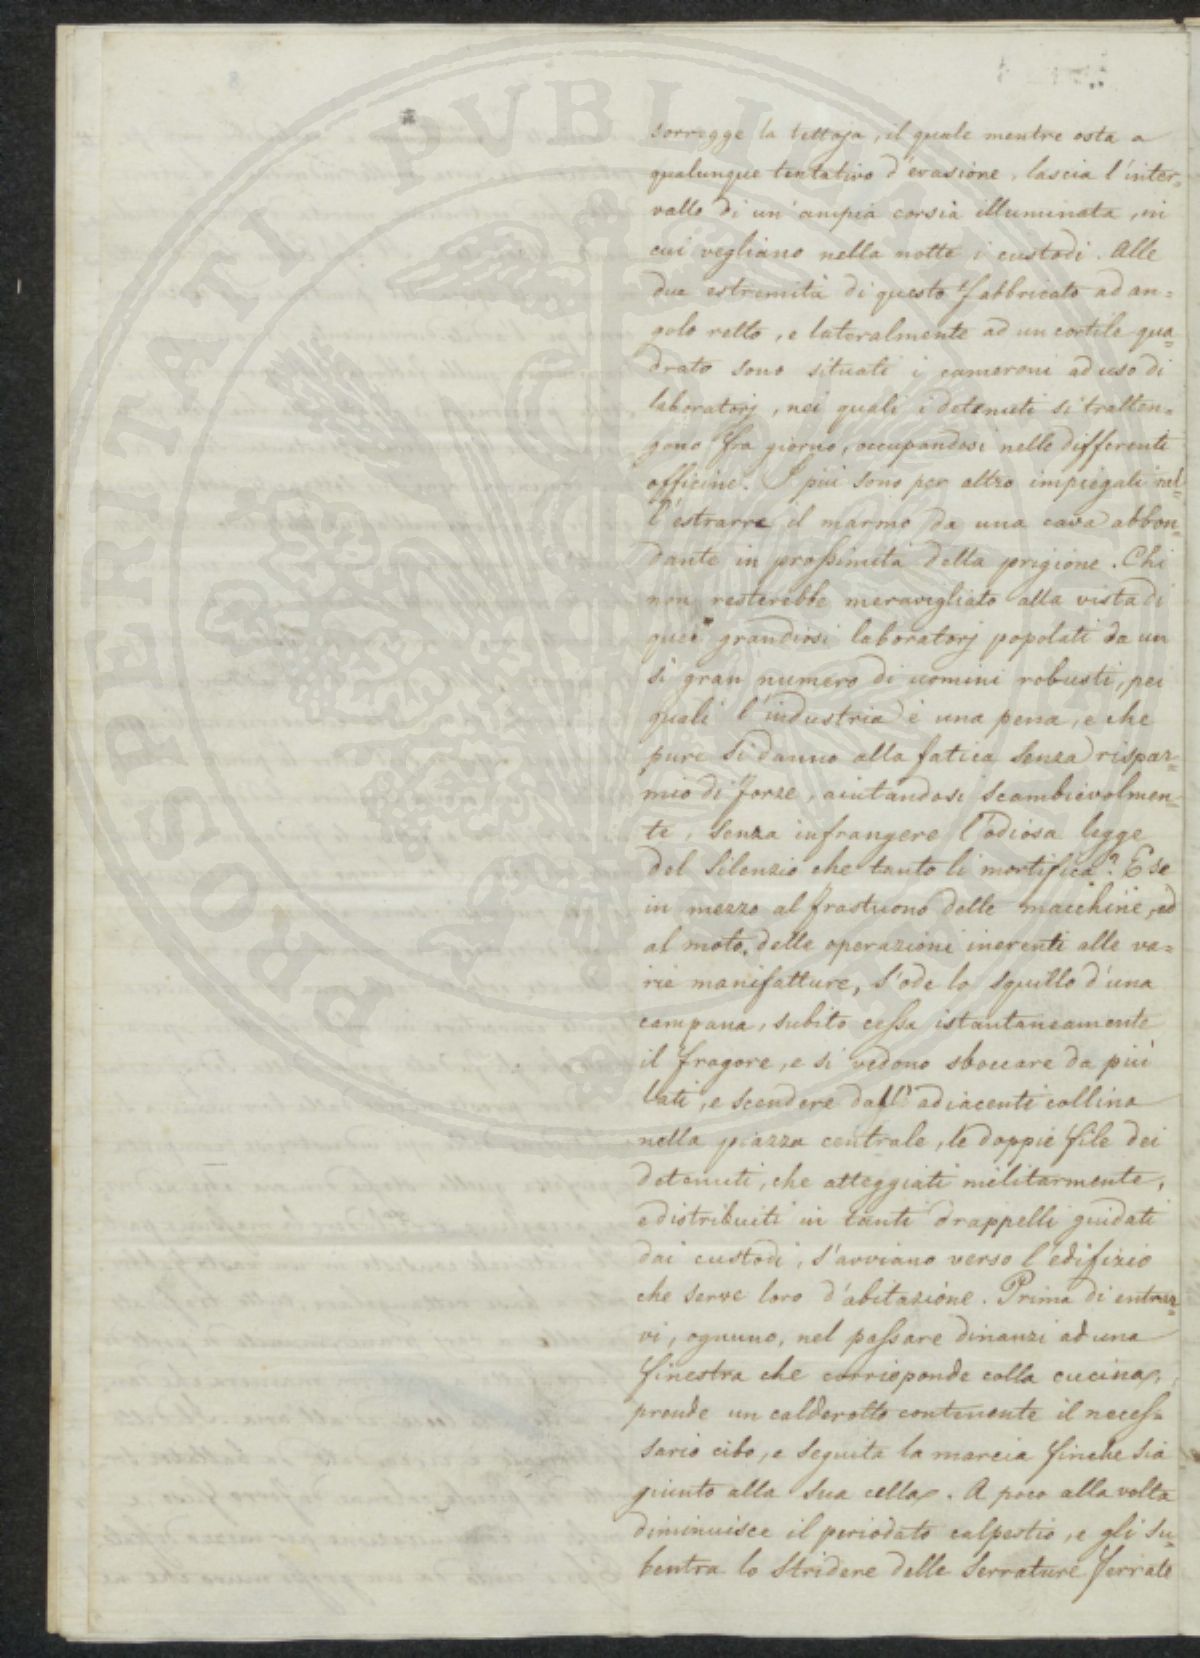 PROSPERITATI PUBLICAE
sorregge la tettoja, il quale mentre osta a
qualunque tentativo d'evasione, lascia l'inter=
vallo di un'ampia corsia illuminata, in
cui vegliano nella notte i custodi. Alle
due estremità di questo fabbricato ad an=
golo retto, e lateralmente ad un cortile qua=
drato sono situati i cameroni ad uso di
laboratorj, nei quali i detenuti si tratten=
gono fra giorno, occupandosi nelle differenti
officine. I più sono per altro impiegati nel=
l'estrarre il marmo da una cava abbon=
dante in prossimità della prigione. Chi
non resterebbe meravigliato alla vista di
quei grandiosi laboratorj popolati da un
sì gran numero di uomini robusti, pei
quali l'industria è una pena, e che
pure si danno alla fatica senza rispar=
mio di forze, aiutandosi scambievolmen=
te, senza infrangere l'odiosa legge
del silenzio che tanto li mortifica? E se
in mezzo al frastuono delle macchine, ed
al moto delle operazioni inerenti alle va=
rie manifatture, s'ode lo squillo d'una
campana, subito cessa istantaneamente
il fragore, e si vedono sboccare da più
lati, e scendere dall'adiacente collina
nella piazza centrale, le doppie file dei
detenuti, che atteggiati militarmente,
e distribuiti in tanti drappelli guidati
dai custodi, s'avviano verso l'edifizio
che serve loro d'abitazione. Prima di entrar=
vi, ognuno, nel passare dinanzi ad una
finestra che corrisponde colla cucina,
prende un calderotto contenente il neces=
sario cibo, e seguita la marcia finche sia
giunto alla sua cella. A poco alla volta
diminuisce il periodato calpestio, e gli su=
bentra lo stridere delle serrature ferrate